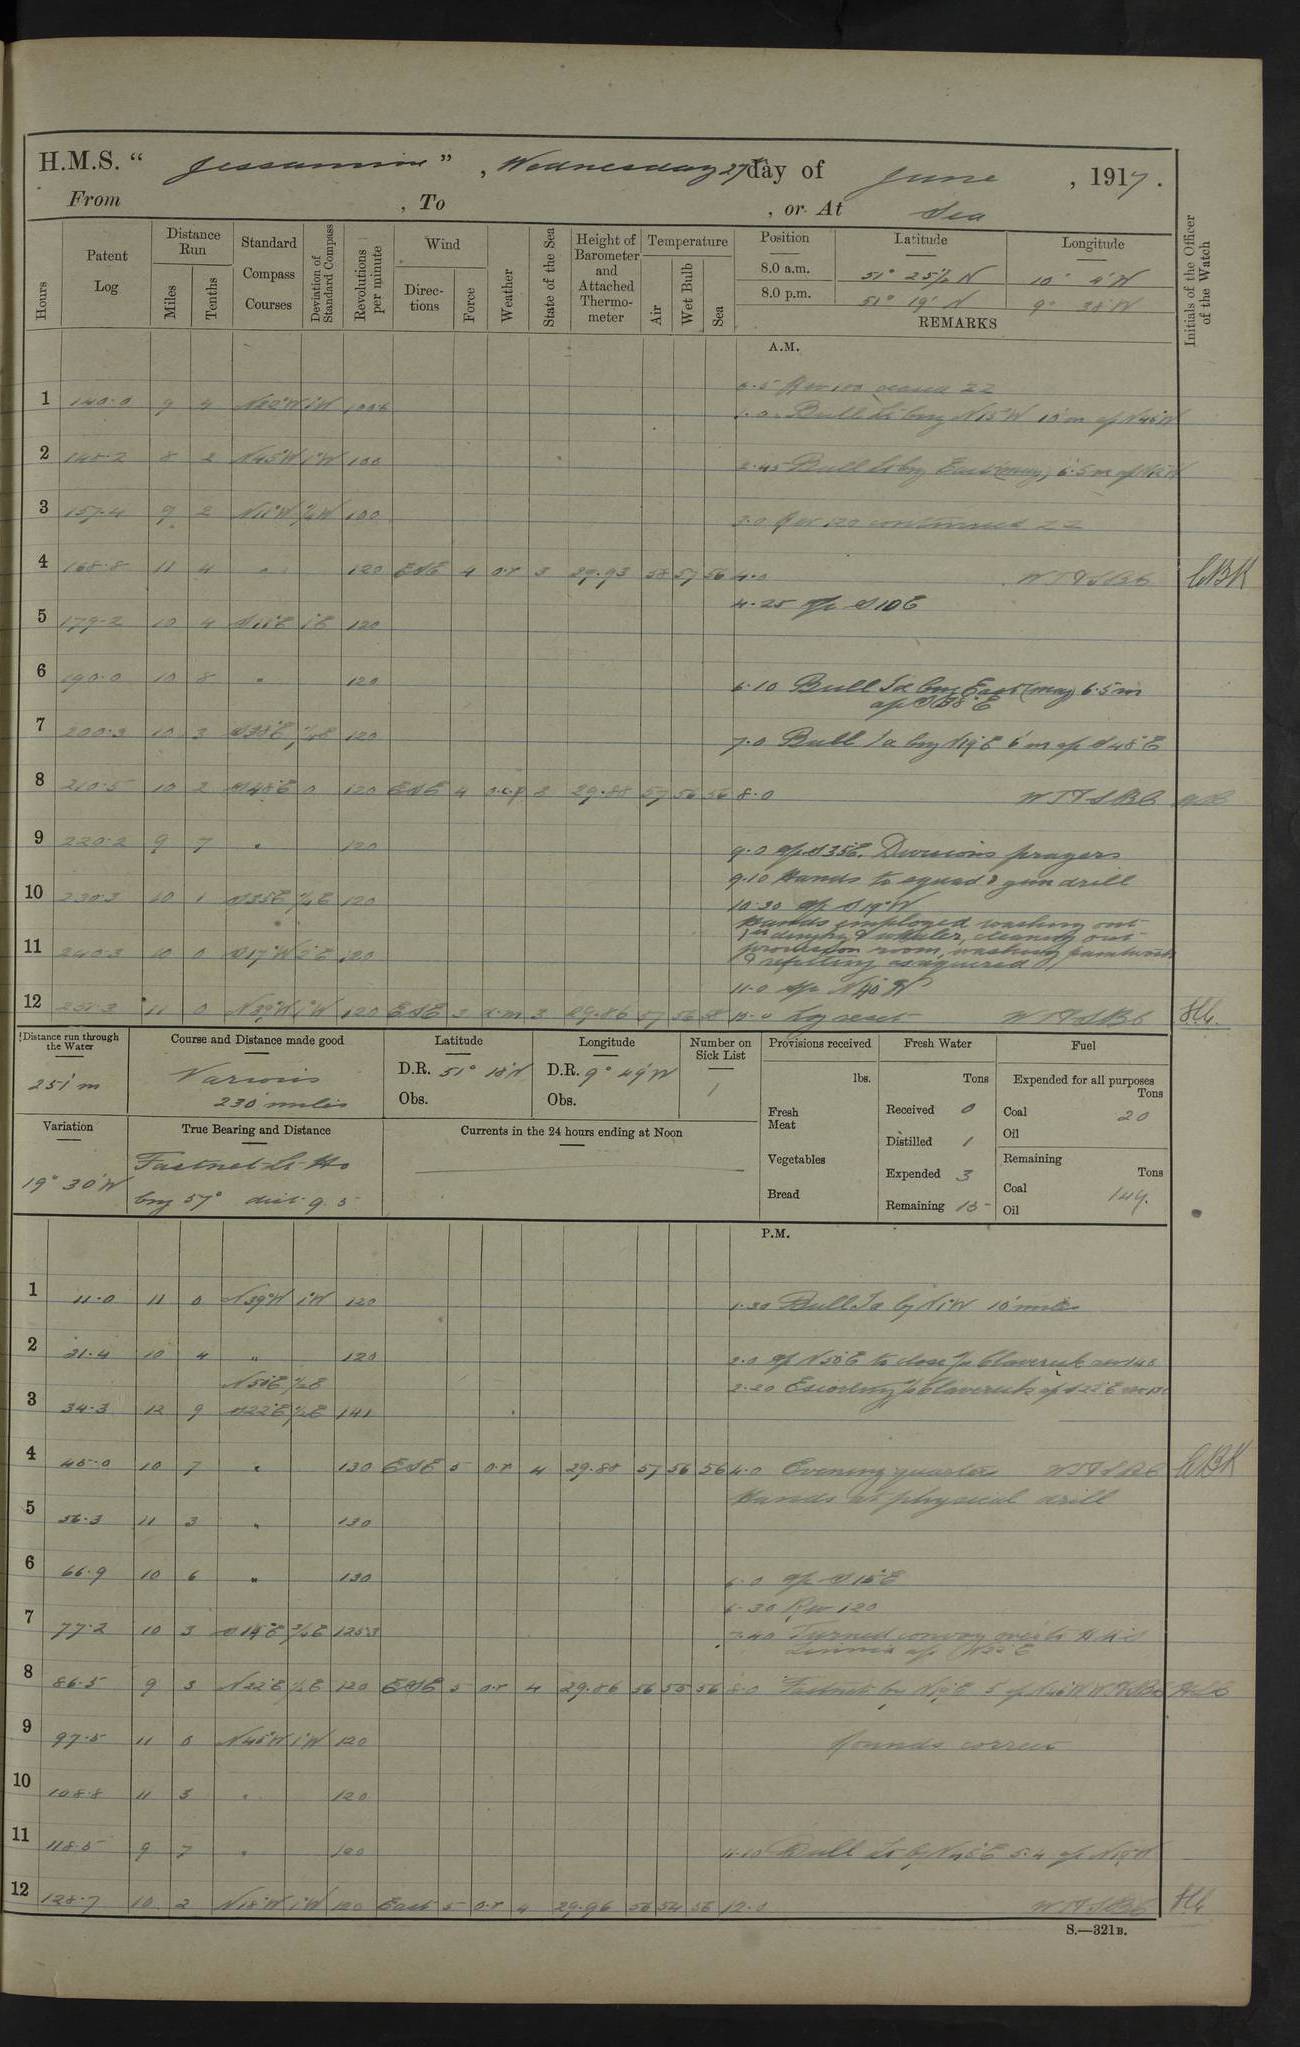 H.M.S. “ Jessamine ” , Wednesday 27th day of June , 1917.
From , To , or At Sea
Hours
Patent Log
Distance Run
Miles
Tenths
Standard Compass Courses
Deviation of Standard Compass
Revolutions per minute
Wind
Direc-tions
Force
Weather
State of the Sea
Height of Barometer and Attached Thermo-meter
Temperature
Air
Wet Bulb
Sea
Position Latitude Longitude
8.0 a.m. 51° 25½ N 10° 4'W
8.0 p.m. 51° 19' N 9° 38'W
REMARKS
Initials of the Officer of the Watch
A.M.
1 140.0 9 4
1.0 Bull Lt brg N15°W 10'm a/c N45W
2 148.2 8 2 N45°W 1°W 100
2.45 Bull Lt brg East (mag) 6.5m
3 157.4 9 2 N11°W ½W 100
3.0 Rev 120 continued ZZ
4 168.8 11 4 " 120 ESE 4 o.r 3 29.93 58 57 56 4.0 WTFSBC CBK
4.25 a/c S10E
5 179.2 10 4 S11°E 1°E 120
6 190.0 10 8 " 120
6.10 Bull Id brg East (mag) 6.5m
a/c S38°E
7 200.3 10 3 S38°E 120
7.0 Bull Id brg N19°E 6'm a/c S48°E
8 210.5 10 2 S48°E 0 120 ESE 4 3 29.88 57 56 56 8.0 WTFSBC
9 220.2 9 7 " 120
9.0 a/c S35E. Divisions prayers
9.10 Hands to squad & gun drill
10 230.3 10 1 S35E 120
10.30 a/c S19°W
Hands employed washing out
dinghy & whaler, cleaning out
provision room, washing paintwork
& refitting as required
11 240.3 10 0 S17°W 2°E 120
11.0 a/c N40°W
12 251.3 11 0 N39°W 1°W 120 ESE 3 3 29.86 57 56 12.0 Log reset WTFSBC
Distance run through the Water
251'm
Course and Distance made good
Various
230 miles
Latitude
D.R. 51° 18'N
Obs.
Longitude
D.R. 9° 49'W
Obs.
Number on Sick List
1
Provisions received
lbs.
Fresh Meat
Vegetables
Bread
Fresh Water
Tons
Received 0
Distilled 1
Expended 3
Remaining 15
Fuel
Expended for all purposes
Tons
Coal 20
Oil
Remaining
Tons
Coal 149.
Oil
Variation
19° 30'W
True Bearing and Distance
Fastnet Lt Ho
brg 57° dist 9.5
Currents in the 24 hours ending at Noon
P.M.
1 11.0 11 0 N39°W 1°W 120
1.30 Bull Id by N1°W 10 miles
2 21.4 10 4 " 120
2.0 a/c N50°E to close S/S Claverick rev 140
N50E ½E
2.20 Escorting S/S Claverick a/c S22°E rev 130
3 34.3 12 9 S22°E ½E 141
4 45.0 10 7 " 130 ESE 5 o.r 4 29.88 57 56 56 4.0 Evening quarters WTFSBC CBK
Hands at physical drill
5 56.3 11 3 " 130
6 66.9 10 6 " 130
6.0 a/c S15°E
6.30 Rev 120
7 77.2 10 3 S14°E ¾E 125.3
7.40 Turned convoy over to H.M.S.
Zinnia a/c N22°E
8 86.5 9 3 N22°E ½E 120 ESE 5 o.r 4 29.86 56 55 56 8.0 Fastnet by N19°E 5'
9 97.5 11 0 N45°W 1°W 120
Rounds correct
10 108.8 11 3 " 120
11 118.5 9 7 " 120
11.10 Bull Lt by N45°E 5.4 a/c N19°W
12 128.7 10 2 N18°W 1°W 120 East 5 o.r 4 29.96 56 54 56 12.0 WTFSBC
S.—321B.